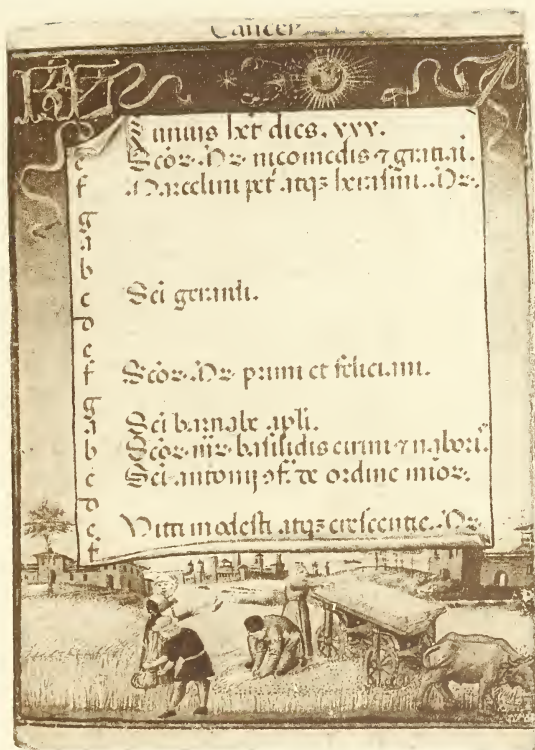 Cancer
Iunius het dies. xxx.
e Scōꝝ. Mꝝ nicomedis ⁊ gratiāi.
f Marcelini pet' atqꝫ herasmi. Mꝝ.
g
a
b
c Sci gerardi.
d
e
f Scōꝝ. Mꝝ primi et feliciani.
g
a Sci barnabe apli.
b Scōꝝ mꝝ basilidis cirini ⁊ naborī
c Sci antonij ɔf. de ordine mīoꝝ.
d
e Viti modesti atqꝫ crescentie. Mꝝ
f